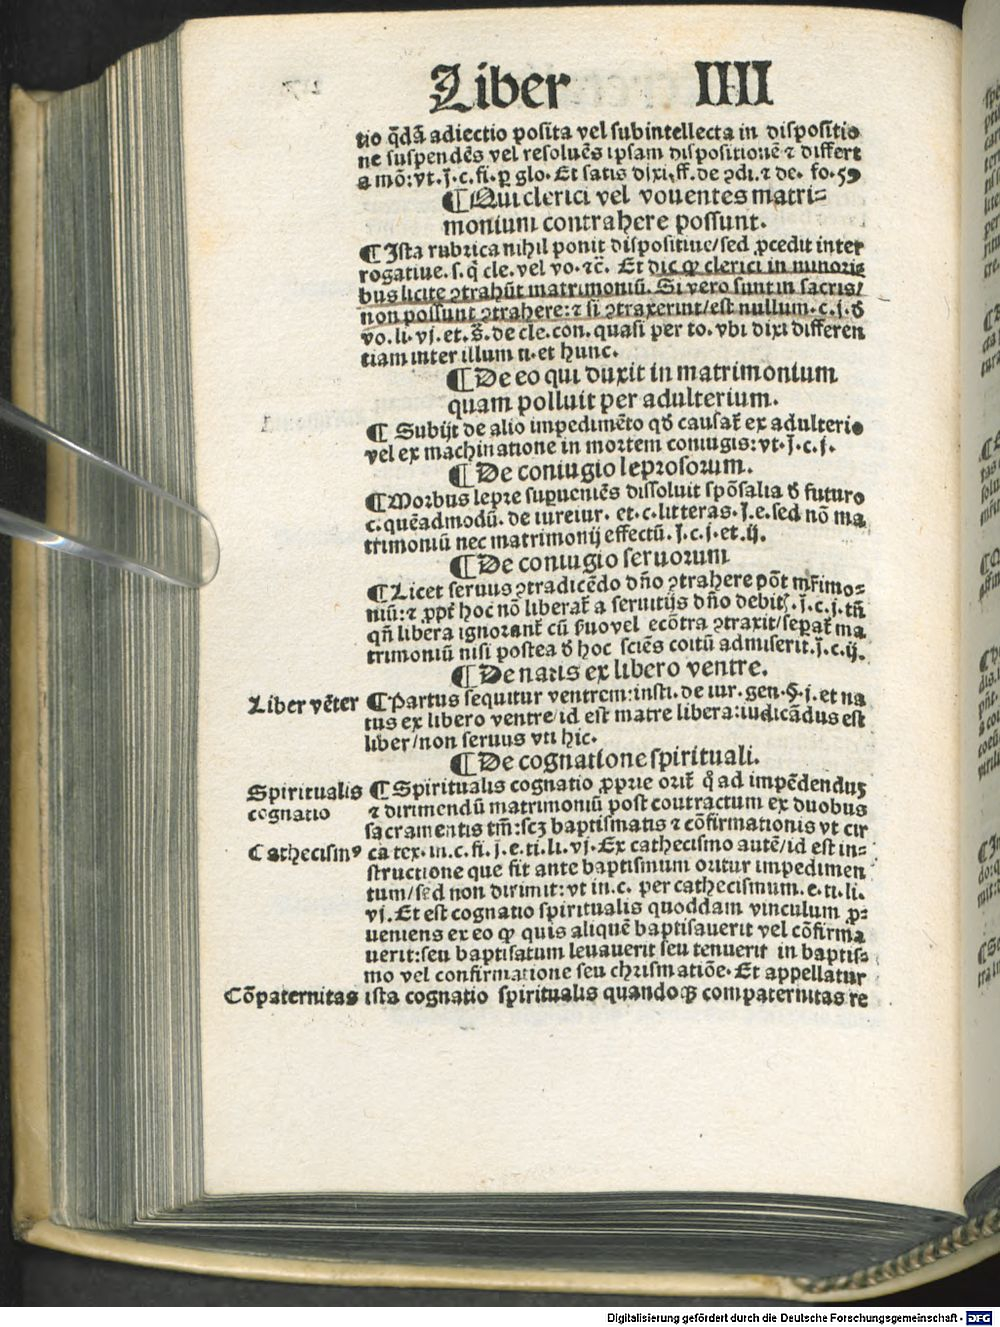 Liber IIII
tio q̄dā adiectio posita vel subintellecta in dispositio
ne suspendēs vel resoluēs ipsam dispositionē ⁊ differt
a mō: vt. j. c. fi. ꝑ glo. Et satis dixi. ff. de ꝯdi. ⁊ de. fo. 59
¶ Qui clerici vel vouentes matri-
monium contrahere possunt.
¶ Ista rubrica nihil ponit dispositiue/sed ꝓcedit inter
rogatiue. s. q̄ cle. vel vo. ⁊c̄. Et dic ꝙ clerici in minorib
bus licite ꝯtrahūt matrimoniū. Si vero sunt in sacris/
non possunt ꝯtrahere: ⁊ si ꝯtraxerint/est nullum. c. j. đ
vo. li. vj. et. s̄. de cle. con. quasi per to. vbi dixi differen
tiam inter illum ti. et hunc.
¶ De eo qui duxit in matrimonium
quam polluit per adulterium.
¶ Subijt de alio impedimēto qđ causat̄ ex adulterio
vel ex machinatione in mortem coniugis: vt. j. c. j.
¶ De coniugio leprosorum.
¶ Morbus lepre supueniēs dissoluit spōsalia đ futuro
c. quēadmodū. de iureiur. et. c. litteras. j. e. sed nō ma
trimoniū nec matrimonij effectū. j. c. j. et. ij.
¶ De coniugio seruorum
¶ Licet seruus ꝯtradicēdo dño ꝯtrahere pōt mr̄imo-
niū: ⁊ ꝓpt̄ hoc nō liberat̄ a seruitijs dño debit. j. c. j. tñ
qñ libera ignorant̄ cū suo vel ecōtra ꝯtraxit/sepat̄ ma
trimoniū nisi postea đ hoc sciēs coitū admiserit. j. c. ij.
¶ De natis ex libero ventre.
Liber vēter ¶ Partus sequitur ventrem: insti. de iur. gen. §. j. et na
tus ex libero ventre/id est matre libera: iudicādus est
liber/non seruus vti hic.
¶ De cognatione spirituali.
Spiritualis ¶ Spiritualis cognatio ꝓprie orit̄ q̄ ad impēdenduꝫ
cognatio ⁊ dirimendū matrimoniū post contractum ex duobus
sacramentis tm̄: scꝫ baptismatis ⁊ cōfirmationis vt cir
Cathecism⁹ ca tex. in. c. fi. j. e. ti. li. vj. Ex cathecismo autē/id est in-
structione que fit ante baptismum oritur impedimen
tum/sed non dirimit: vt in. c. per cathecismum. e. ti. li.
vj. Et est cognatio spiritualis quoddam vinculum ꝓ-
ueniens ex eo ꝙ quis aliquē baptisauerit vel cōfirma
uerit: seu baptisatum leuauerit seu tenuerit in baptis-
mo vel confirmatione seu chrismatiōe. Et appellatur
Cōpaternitas ista cognatio spiritualis quandoqꝫ compaternitas re
Digitalisierung gefördert durch die Deutsche Forschungsgemeinschaft - DFG